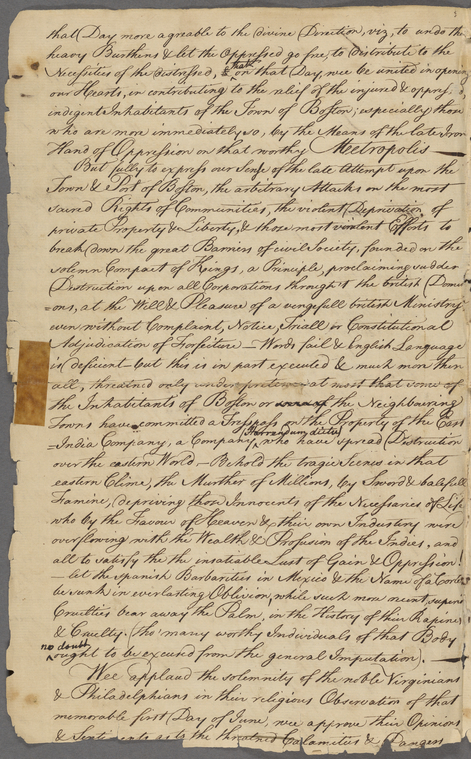 that Day more agreable to the divine Direction, viz, to undo the
heavy Burthens & let the Oppressed go free, to distribute to the
Necessities of the distressed, & that on that Day, wee be united in opening
our Hearts, in contributing to the relief of the injured & oppres
indigent Inhabitants of the Town of Boston; especially those
who are more immediately so, by the Means of the late Iron
Hand of Oppression on that worthy Meetropolis —
But fully to express our Sense of the late Attempt upon the
Town & Port of Boston, the arbitrary Attacks on the most
sacred Rights of Communities, the violent Deprivation of
private Property & Liberty, & those most violent Efforts to
break down the great Barriers of civil Society, founded on the
solemn Compact of Kings, a Principle, proclaiming sudden
Distruction upon all Corporations through't the british Domi
=ons, at the Will & Pleasure of a vengefull british Ministry
even without Complaint, Notice, Triall or Constitutional
Adjudication of Forfeiture — Words fail & English Language
is deficient — but this is in part executed & much more then
all, threatned only under pretence at most that some of
the Inhabitants of Boston or the Neighbouring
Towns have committed a Tresspass on the Property of the East
=India Company, a Company, who have spread Distruction
over the eastern World — Behold the tragic Scenes in that
eastern Clime, the Murther of Millions, by Sword & balefull
Famine, (depriving those Innocents of the Necessaries of Life
who by the Favour of Heaven & their own Industry were
overflowing with the Wealth & Profusion of the Indies, and
all to satisfy the the insatiable Lust of Gain & Oppression!
— let the Spanish Barbarities in Mexico & the Name of a Cortez
be sunk in everlasting Oblivion, while such more recent, superior
Cruelties bear away the Palm, in the History of their Rapines
& Cruelty. (tho' many worthy Individuals of that Body
no doubt ought to be excused from the general Imputation). —
Wee applaud the solemnity of the noble Virginians
& Philadelphians in their religious Observation of that
memorable first Day of June, wee approve their Opinions
& Sentiments as to the threatned Calamities & Dangers